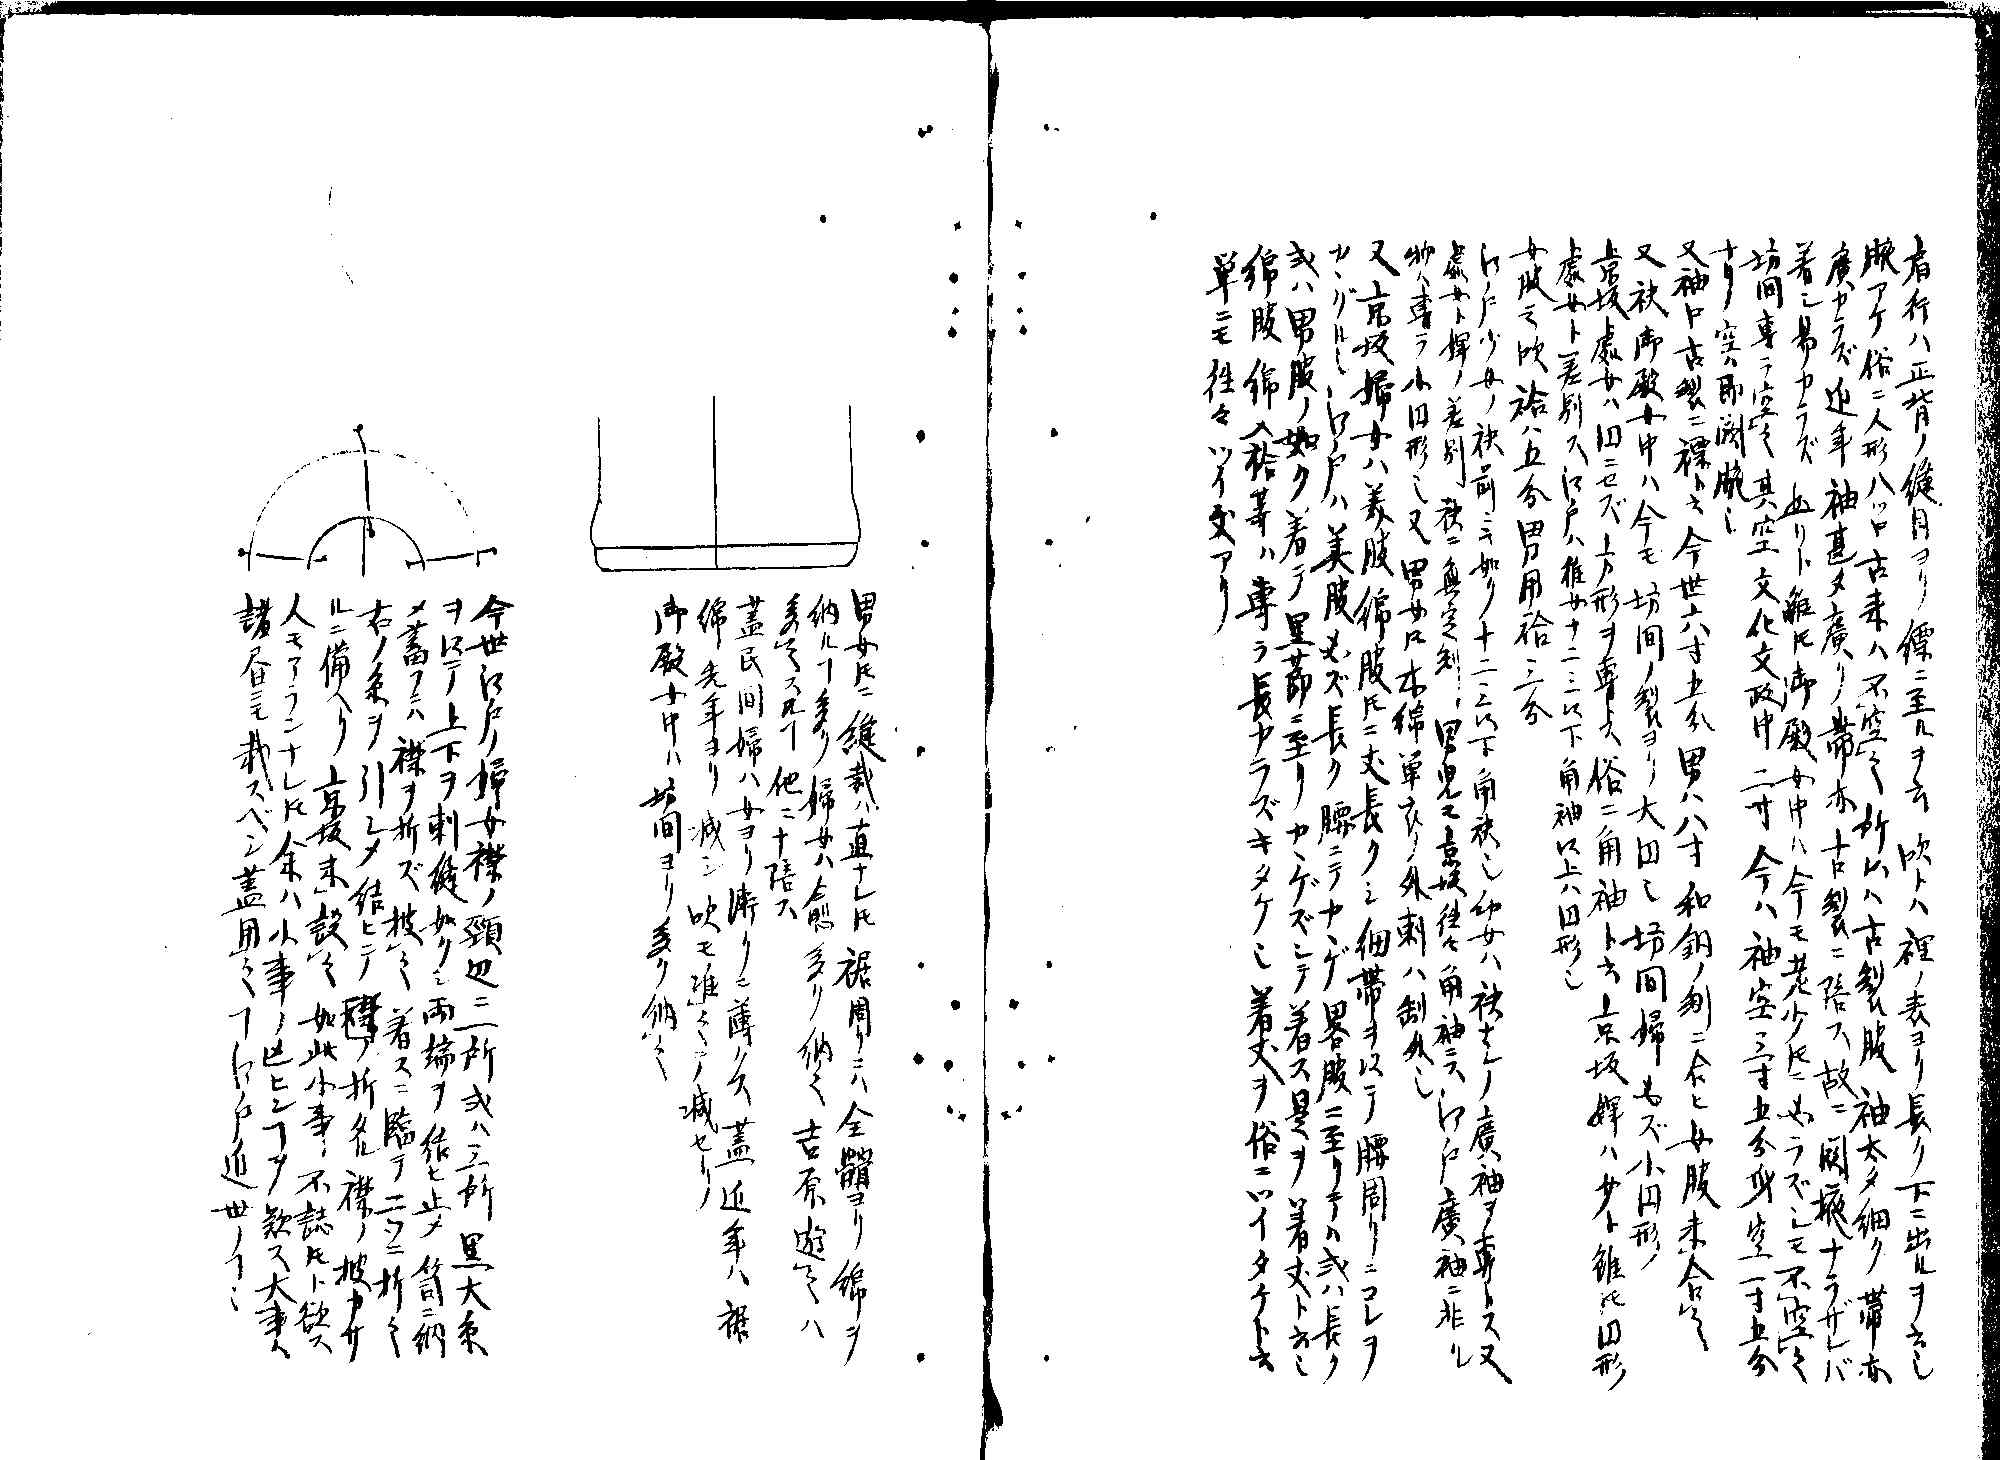 肩行ハ正背ノ縫目ヨリ縹ニ至ルヲ云 吹トハ裡ノ表ヨリ長ク下ニ出ルヲ云也
腋アケ俗ニ人形八ツ口古来ハ不空之 所以ハ古製服袖太タ細ク帯亦
廣カラズ近年袖甚タ廣ク帯亦古製ニ陪ス故ニ闕掖ナラザレバ
着シ易カラズ 如此ト雖ドモ御殿女中ハ今モ老少トモニ必ラズシモ不空之
坊間専ラ空之 其空文化文政中二寸今ハ袖空三寸五分身空一寸五分
ナリ 空ハ即闕腋也
又袖口古製ニ襟ト云 今世六寸五分男ハ八寸 和銅ノ制ニ合ヒ女服未合之
又袂御殿女中ハ今モ坊間ノ製ヨリ大円也 坊間婦必ズ小円形
京坂處女ハ円ニセズ方形ヲ専トス俗ニ角袖ト云 京坂婢ハ女ト雖トモ円形
處女ト差別ス江戸ハ稚女十二三以下角袖以上ハ円形也
女服ミ吹袷ハ五分男用袷三分
江戸少女ノ袂前ニ云如ク十二三以下角袂也幼女ハ袂ナシノ廣袖ヲ専トス又
處女ト婢ノ差別 袂ニ無定制 男児モ京坂往々角袖ニス江戸廣袖ニ非ル
物ハ専ラ小円形也 又男女トモ木綿単衣ノ外刺ハ制外也
又京坂婦女ハ美服綿服トモニ丈長クシ細帯ヲ以テ腰周リニコレヲ
カヽグル也 江戸ハ美服必ズ長ク腰ニテカヽゲ畧服ニ至リテハ或ハ長ク
或ハ男服ノ如ク着テ里節ニ至リカヽゲズシテ着ス是ヲ着丈ト云也
綿服綿入袷等ハ専ラ長カラズキタケ也 着丈ヲ俗ニツイタケト云
単ニモ往々ツイ丈アリ
男女トモニ縫裁ハ直ナレドモ裾周リニハ全體ヨリ綿ヲ
納ルコト多ク婦女ハ愈多ク納之 吉原遊女ハ
多之スルコト他ニ十陪ス
蓋民間婦ハ女ヨリ漸クニ薄クス蓋近年ハ裾
綿先年ヨリ減シ吹モ准之テ減セリ
御殿女中ハ坊間ヨリ多ク納之
今世江戸ノ婦女襟ノ頸辺ニ二所或ハ三所黒大糸
ヲ以テ上下ヲ刺縫如クシ両端ヲ結ヒ止メ 笥ニ納
メ蓄フニハ襟ヲ折ズ披之 着スニ臨テ二ツニ折之
右ノ糸ヲ引シメ結ヒテ 折タル襟ノ披カサ
ルニ備ヘリ 京坂未設之 如此小事不誌トモト欲ス
人モアランナレトモ余ハ小事ノ亡ヒンコヲ歎ス大事ハ
諸君ニモ載スベシ蓋用之コト江戸近世ノコト也